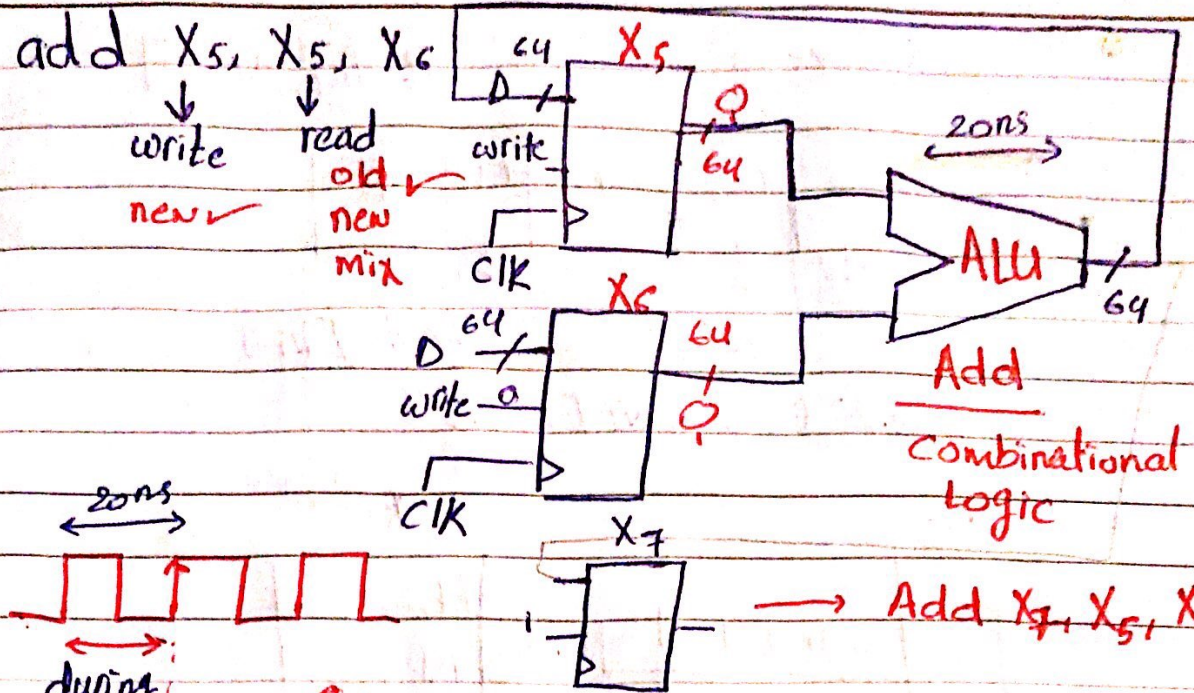 add X5, X5, X6
write read
old ✓
new ✓ new
mix
64 X5
D
write
CLK
Q
64
20ns
ALU
64
Add
Combinational
Logic
X6
64
D
write 0
CLK
64
Q
20ns
during
X7
1
→ Add X7, X5, X